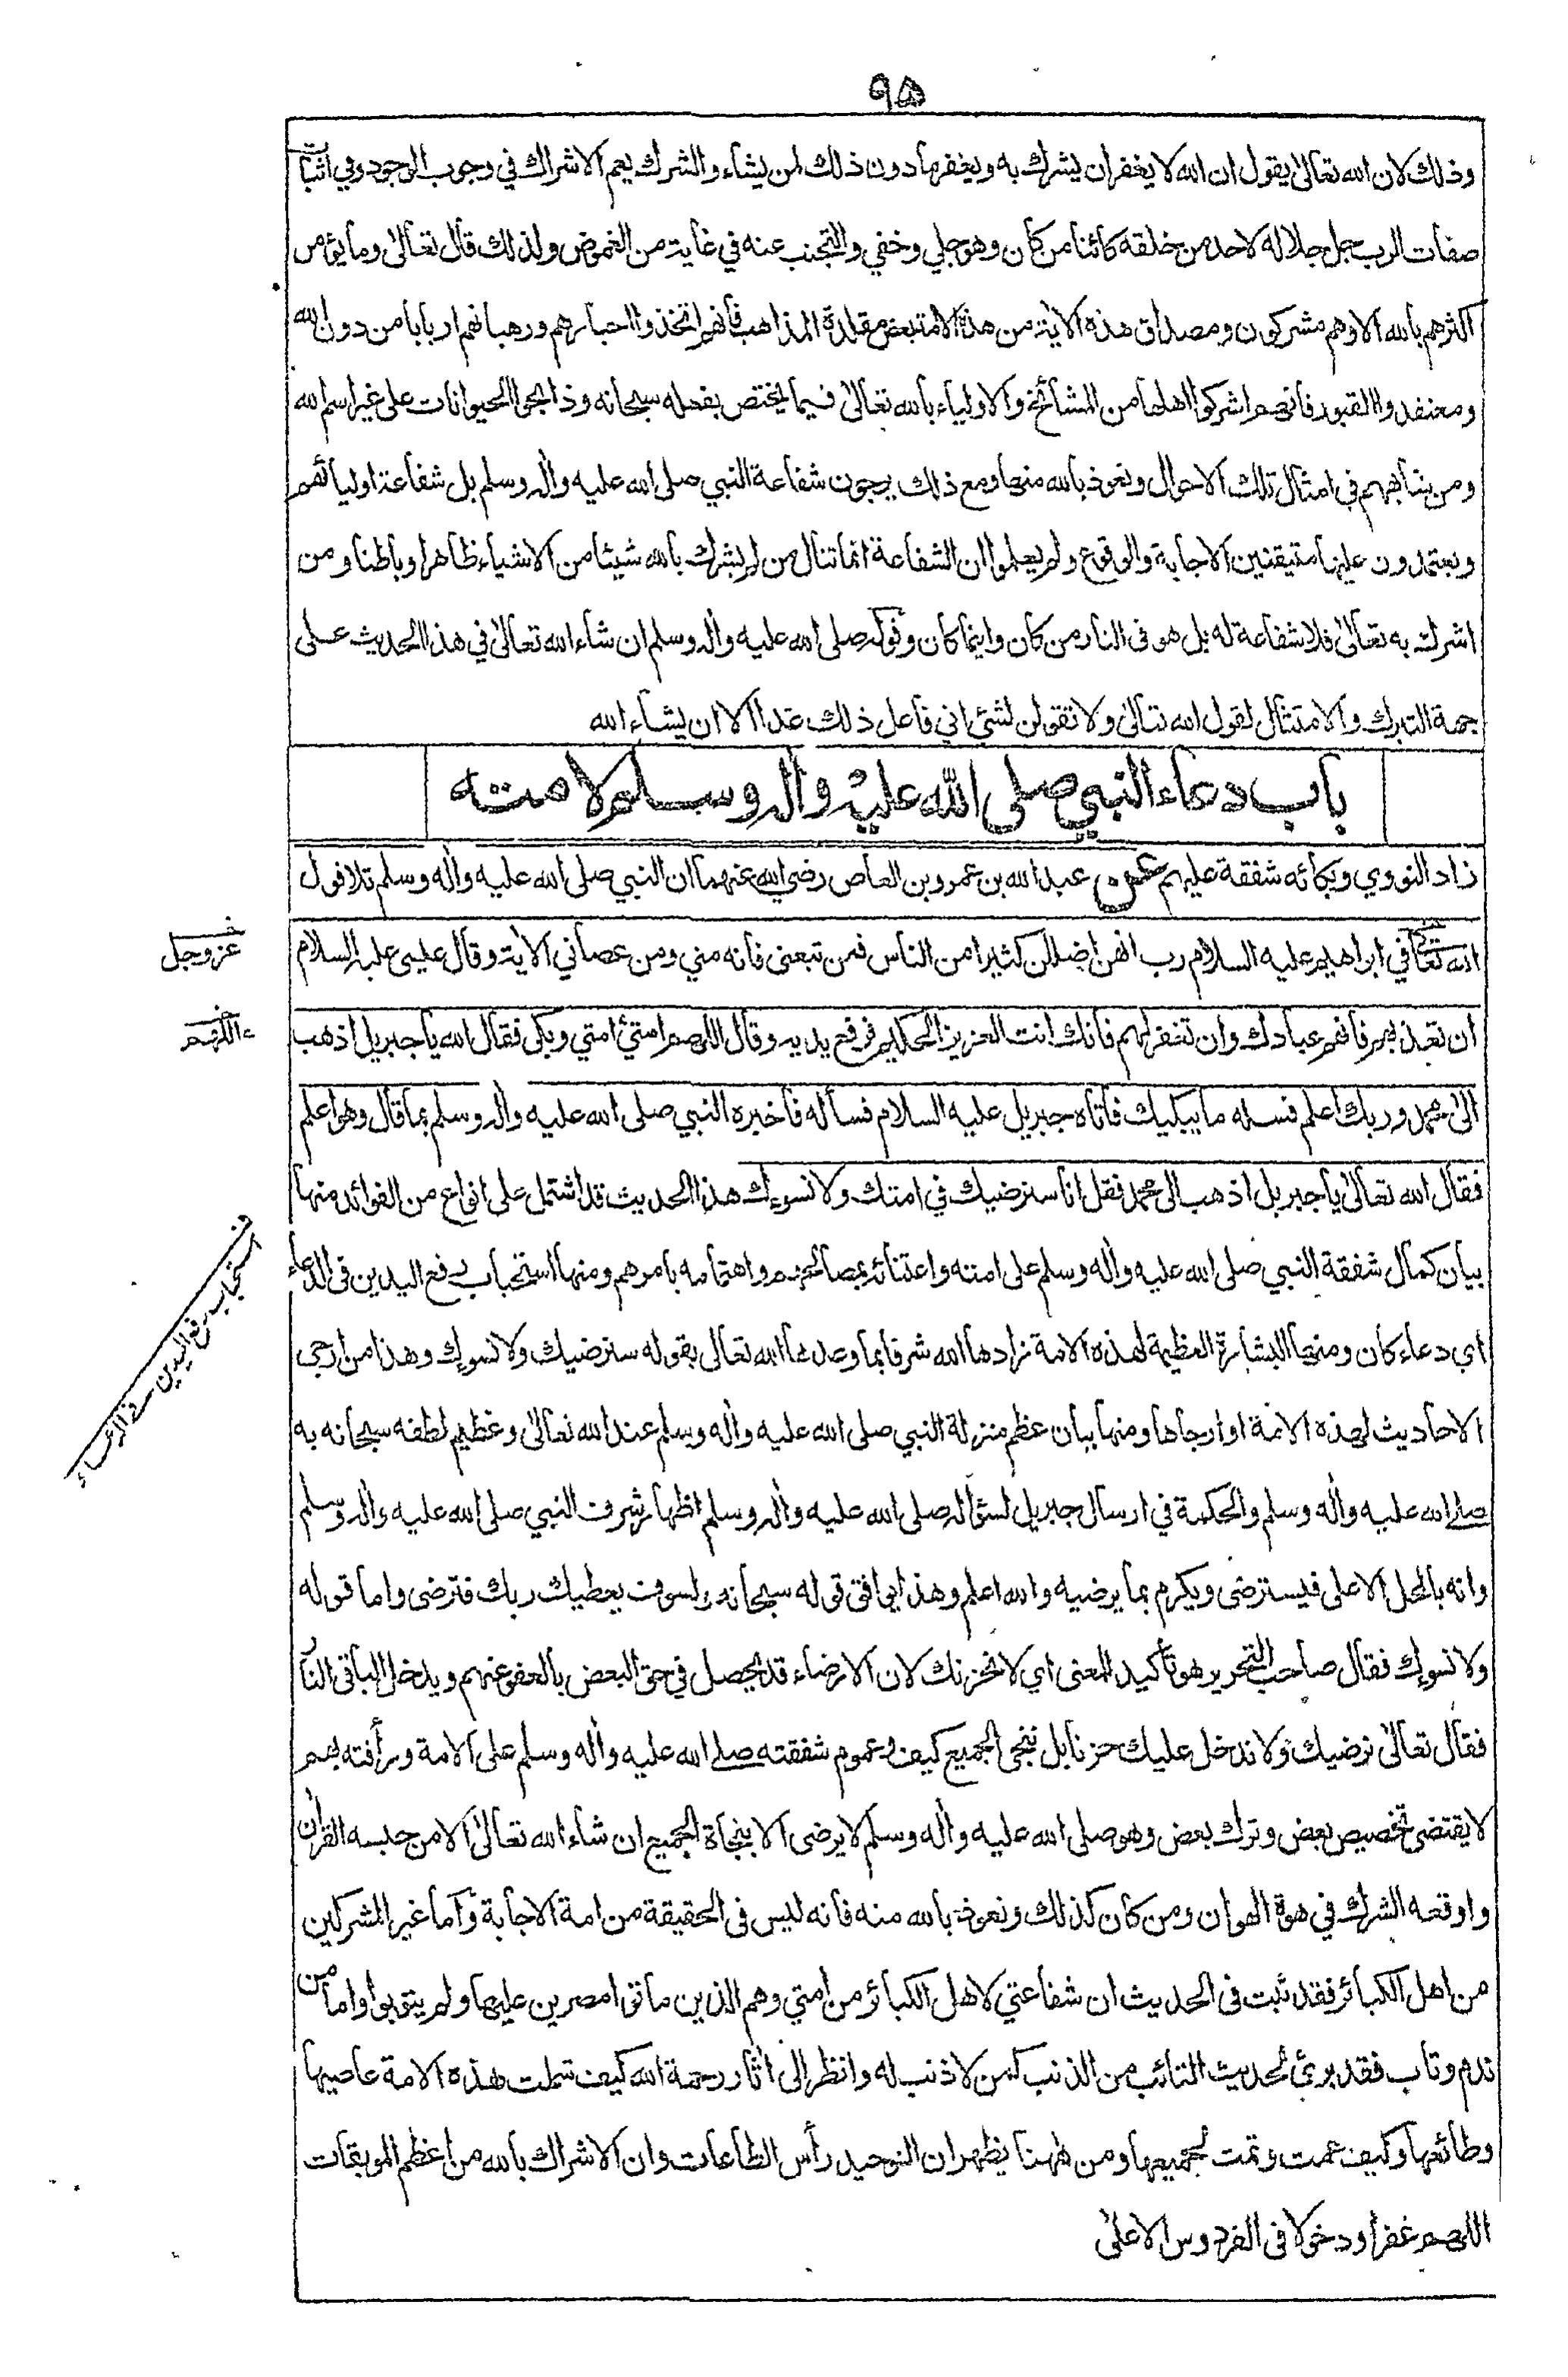 ٩٥
وذلك لان الله تعالى يقول ان الله لا يغفر ان يشرك به ويغفر ما دون ذلك لمن يشاء والشرك يعم الاشراك في وجوب الوجود وفي اثبات
صفات الرب جل جلاله لاحد من خلقه كائنا من كان وهو جلي وخفي والتجنب عنه في غاية من الغموض ولذلك قال تعالى وما يؤمن
اكثرهم بالله الا وهم مشركون ومصداق هذه الاية من هذه الامة بعض مقلدة المذاهب فانهم اتخذوا احبارهم ورهبانهم اربابا من دون الله
ومعتقدوا القبور فانهم اشركوا اهلها من المشائخ والاولياء بالله تعالى فيما يختص بفعله سبحانه وذابحوا الحيوانات على غير اسم الله
ومن يضاهيهم في امثال تلك الاحوال ونعوذ بالله منها ومع ذلك يرجون شفاعة النبي صلى الله عليه واله وسلم بل شفاعة اوليائهم
ويعتمدون عليها متيقنين الاجابة والوقوع ولم يعلموا ان الشفاعة انما تنال من لم يشرك بالله شيئا من الاشياء ظاهرا وباطنا ومن
اشرك به تعالى فلا شفاعة له بل هو فى النار من كان واينما كان وقوله صلى الله عليه واله وسلم ان شاء الله تعالى في هذا الحديث على
جهة التبرك والامتثال لقول الله تعالى ولا تقولن لشئ اني فاعل ذلك غدا الا ان يشاء الله
باب دعاء النبي صلى الله عليه واله وسلم لامته
زاد النووي وبكائه شفقة عليهم عن عبد الله بن عمرو بن العاص رضي الله عنهما ان النبي صلى الله عليه واله وسلم تلا قول
الله تعالى في ابراهيم عليه السلام رب انهن اضللن كثيرا من الناس فمن تبعنى فانه مني ومن عصاني الاية وقال عيسى عليه السلام
عز وجل
ان تعذبهم فانهم عبادك وان تغفر لهم فانك انت العزيز الحكيم فرفع يديه وقال اللهم امتي امتي وبكى فقال الله يا جبريل اذهب
اللهم
الى محمد وربك اعلم فسله ما يبكيك فاتاه جبريل عليه السلام فسأله فاخبره النبي صلى الله عليه واله وسلم بما قال وهو اعلم
فقال الله تعالى يا جبريل اذهب الى محمد فقل انا سنرضيك في امتك ولا نسوءك هذا الحديث قد اشتمل على انواع من الفوائد منها
بيان كمال شفقة النبي صلى الله عليه واله وسلم على امته واعتنائه بمصالحهم واهتمامه بامرهم ومنها استحباب رفع اليدين فى الدعاء
استحباب رفع اليدين في الدعاء
اي دعاء كان ومنها البشارة العظيمة لهذه الامة زادها الله شرفا بما وعدها الله تعالى بقوله سنرضيك ولا نسوءك وهذا من ارجى
الاحاديث لهذه الامة او ارجاها ومنها بيان عظم منزلة النبي صلى الله عليه واله وسلم عند الله تعالى وعظيم لطفه سبحانه به
صلى الله عليه واله وسلم والحكمة في ارسال جبريل لسؤاله صلى الله عليه واله وسلم اظهار شرف النبي صلى الله عليه واله وسلم
وانه بالمحل الاعلى فيسترضى ويكرم بما يرضيه والله اعلم وهذا يوافق قوله سبحانه ولسوف يعطيك ربك فترضى واما قوله
ولا نسوءك فقال صاحب التحرير هو تأكيد للمعنى اي لا نحزنك لان الارضاء قد يحصل في حق البعض بالعفو عنهم ويدخل الباقى النار
فقال تعالى نرضيك ولا ندخل عليك حزنا بل ننجى الجميع كيف وعموم شفقته صلى الله عليه واله وسلم على الامة ورأفته بهم
لا يقتضى تخصيص بعض وترك بعض وهو صلى الله عليه واله وسلم لا يرضى الا بنجاة الجميع ان شاء الله تعالى الا من حبسه القران
واوقعه الشرك في هوة الهوان ومن كان كذلك ونعوذ بالله منه فانه ليس فى الحقيقة من امة الاجابة واما غير المشركين
من اهل الكبائر فقد ثبت فى الحديث ان شفاعتي لاهل الكبائر من امتي وهم الذين ماتوا مصرين عليها ولم يتوبوا واما من
ندم وتاب فقد برئ لحديث التائب من الذنب كمن لا ذنب له وانظر الى اثار رحمة الله كيف شملت هذه الامة عاصيها
وطائعها وكيف عمت وتمت لجميعها ومن ههنا يظهر ان التوحيد رأس الطاعات وان الاشراك بالله من اعظم الموبقات
اللهم غفرا ودخولا فى الفردوس الاعلى